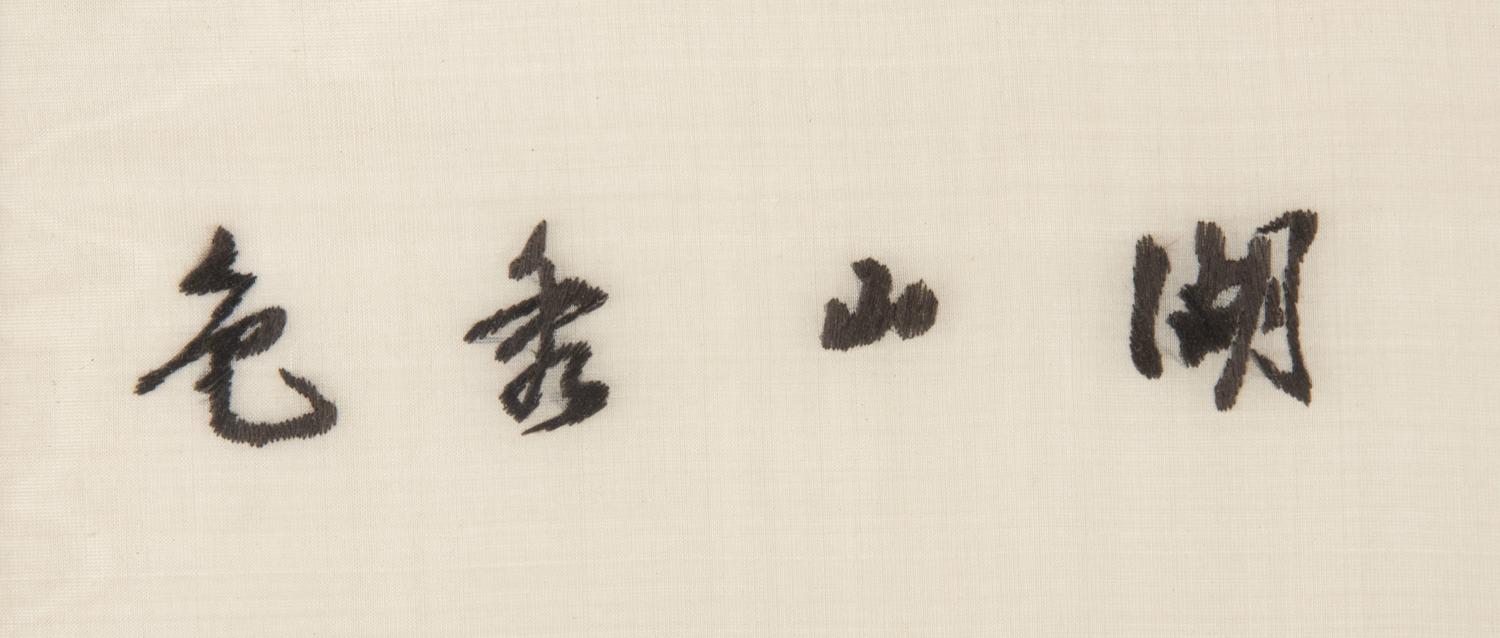 湖山秀色